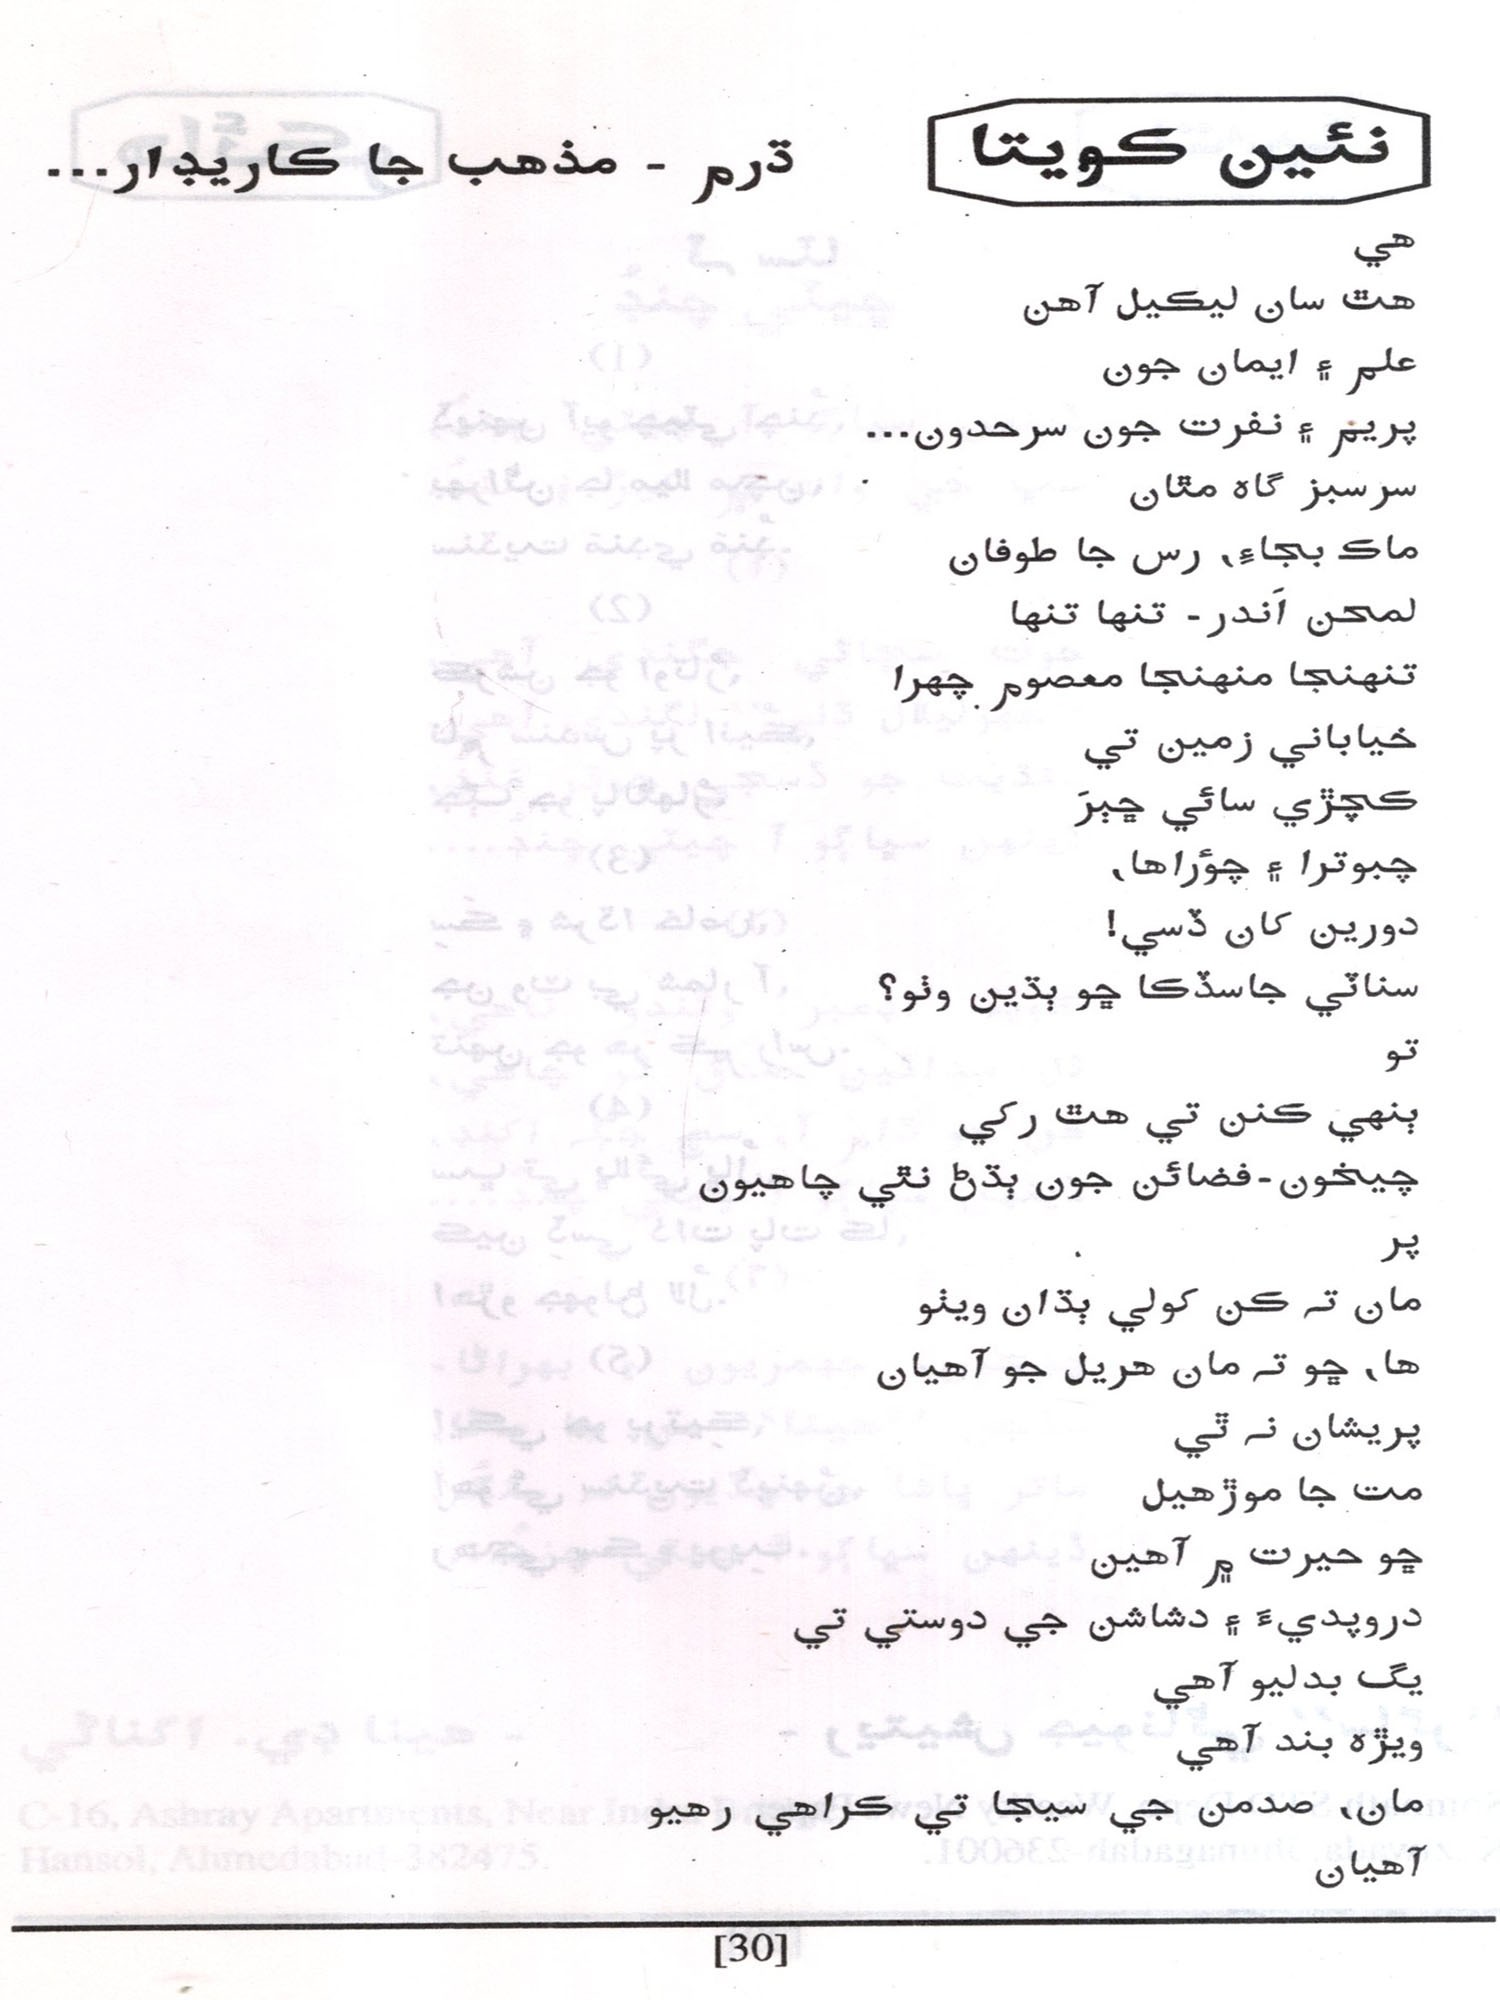 نئين ڪويتا
ڌرم - مذهب جا ڪاريڊار...
هي
هٿ سان ليڪيل آهن
علم ۽ ايمان جون
پريم ۽ نفرت جون سرحدون...
سرسبز گاه مٿان
ماڪ بجاءِ، رس جا طوفان
لمحن اَندر- تنها تنها
تنهنجا منهنجا معصوم چهرا
خياباني زمين تي
ڪچڙي سائي ڇٻرَ
چبوترا ۽ چوَراها،
دورين کان ڏسي!
سناٽي جاسڏڪا ڇو ٻڌين وٺو؟
تو
ٻنهي ڪنن تي هٿ رکي
چيخون-فضائن جون ٻڌڻ نٿي چاهيون
پر
مان تہ ڪن کولي ٻڌان ويٺو
ها، ڇو تہ مان هريل جو آهيان
پريشان نہ ٿي
مت جا موڙهيل
ڇو حيرت ۾ آهين
دروپديءَ ۽ دشاشن جي دوستي تي
يگ بدليو آهي
ويڙه بند آهي
مان، صدمن جي سيجا تي ڪراهي رهيو
آهيان
[30]